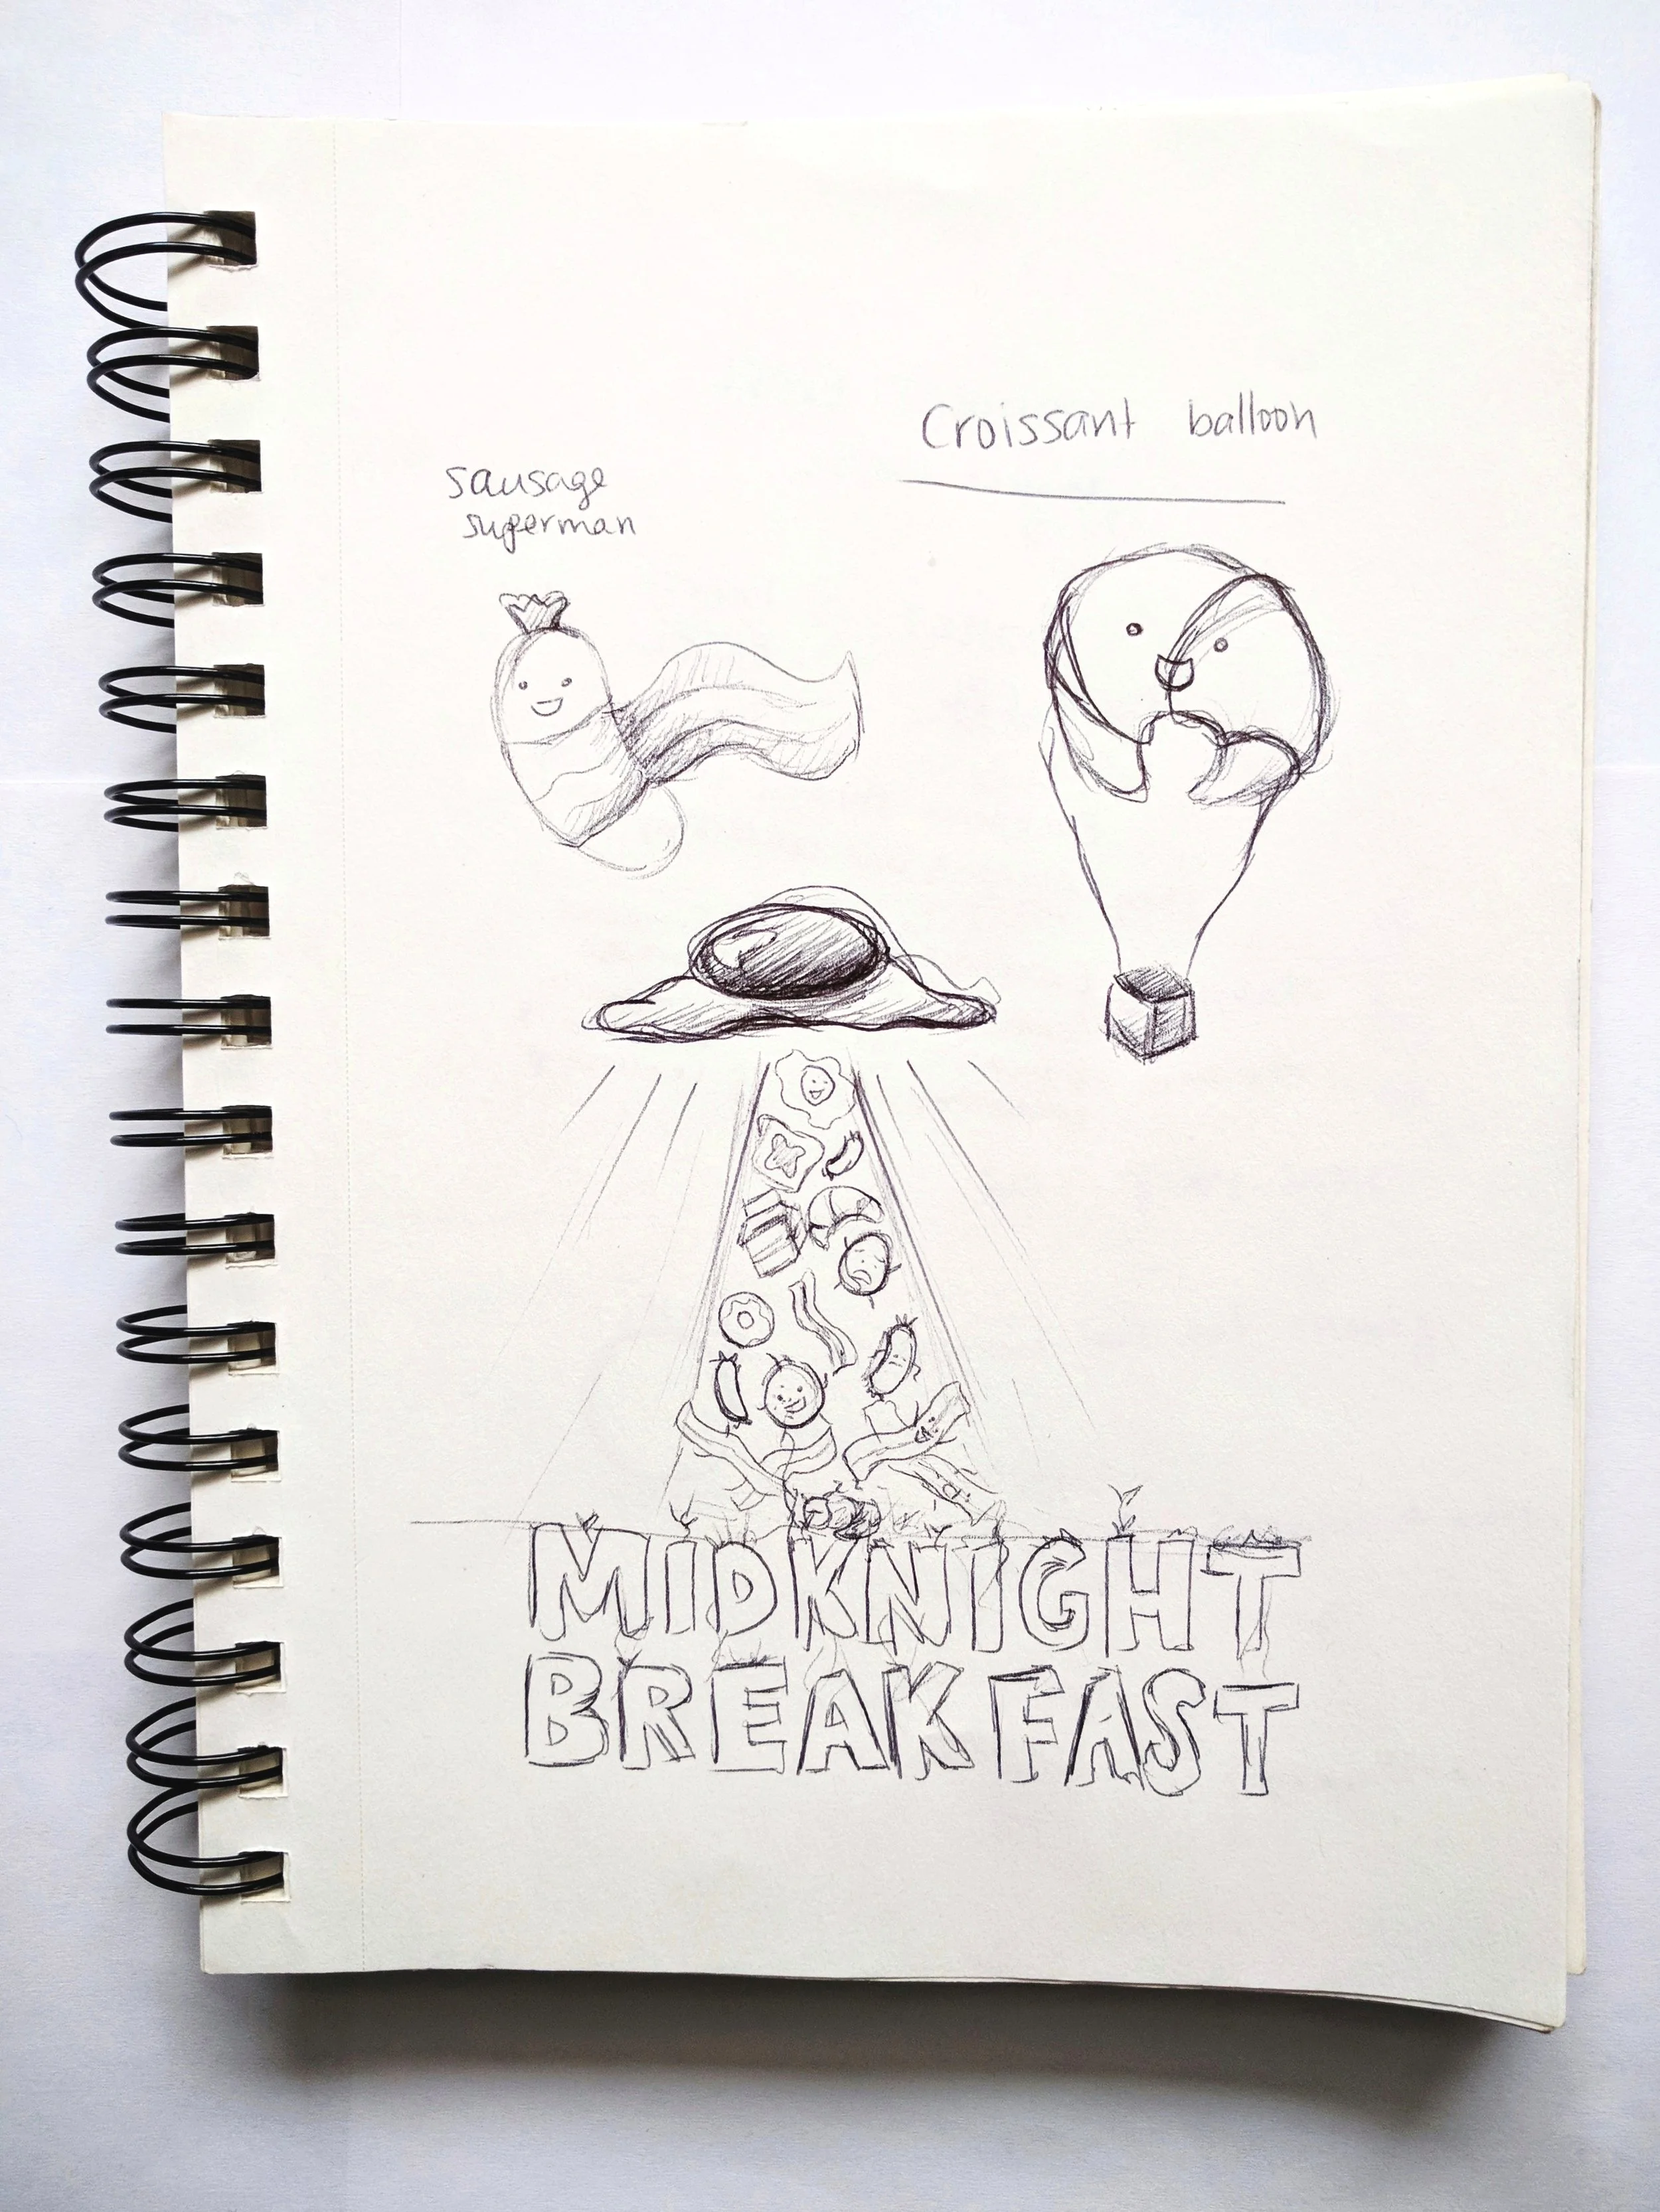 Croissant balloon
sausage
superman
MIDKNIGHT
BREAKFAST